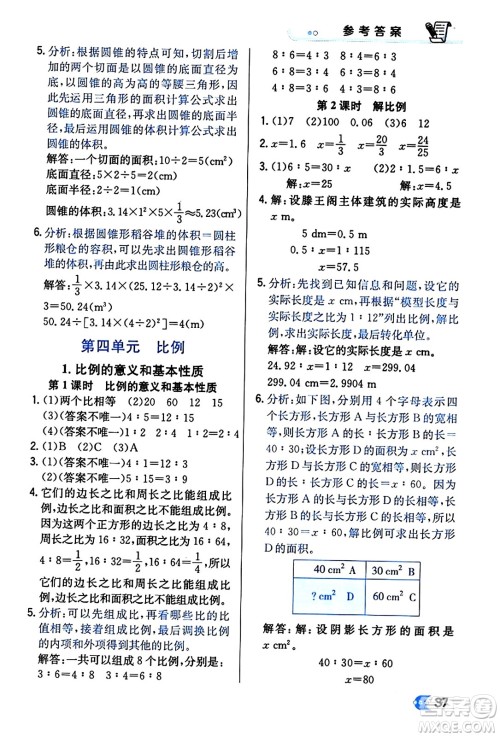 参考答案
5. 分析：根据圆锥的特点可知，切割后增
加的两个切面是以圆锥的底面直径为
底，以圆锥的高为高的等腰三角形，
因此先运用三角形的面积计算公式求
出圆锥的底面直径，进而求出底面半
径，然后根据圆锥的体积计算公式求出
圆锥的体积。
解答：一个切面的面积：10÷2＝5(cm²)
底面直径：5×2÷5＝2(cm)
底面半径：2÷2＝1(cm)
圆锥的体积：3.14×1²×5×1/3≈5.23(cm³)
6. 分析：根据圆锥形稻谷堆的体积＝圆柱
形粮仓的容积，可以先求出圆锥形稻谷
堆的体积，再求出圆柱形粮仓的高。
解答：1/3×3.14×(25.12÷3.14÷2)²×
3＝50.24(m³)
50.24÷[3.14×(12.56÷3.14÷2)²]＝4(m)
第四单元 比例
1. 比例的意义和基本性质
第 1 课时 比例的意义和基本性质
1. (1)两个比相等 (2)20 60 12 15
(3)(答案不唯一)4∶5＝12∶15
2. (1)B (2)C (3)A
3. (1)(答案不唯一)4∶1＝16∶4
(2)(答案不唯一)4∶2＝8∶4
4. 它们的边长之比和周长之比能组成比
例。因为这两个正方形的边长之比是
4∶8＝1/2，16∶32＝1/2，4∶8＝16∶32
它们的边长之比和面积之比不能组成比
例。4∶8＝1/2，16∶64＝1/4，1/2≠1/4，所
以它们的边长之比和面积之比不能组成
比例。
5. 分析：可以先组成比，再看哪些比的比
值相等，接着组成比例，最后再将比例
的内项和外项进行调换。
解答：一共可以组成 8 个比例。
3∶6＝4∶8 3∶4＝6∶8
8∶6＝4∶3 8∶4＝6∶3
6∶3＝8∶4 6∶8＝3∶4
4∶3＝8∶6 4∶8＝3∶6
第 2 课时 解比例
1. (1)7 (2)100 0.06 (3)12 6
2. x＝1.6 x＝1/3 x＝20/33 x＝24/25
3. (1)6∶5＝30∶x (2)2∶x＝6∶13.5
解：x＝25 解：x＝4.5
4. 解：设滕王阁主体建筑的实际高度是
x m。
5 dm＝0.5 m
0.5∶x＝1∶115
x＝57.5
5. 分析：先找到已知信息和问题，设它的
实际长度是 x cm，再根据“模型长度与
实际长度的比为 1∶12”列出比例，解
比例，求出实际长度，最后转化单位。
解答：解：设它的实际长度是 x cm。
24.92∶x＝1∶12 x＝299.04
299.04 cm＝2.9904 m
6. 分析：如下图，分别用 4 个字母表示四
个长方形，长方形 A 与长方形 B 的宽相
等，则长方形 A 与长方形 B 的长的比＝
40∶30；设长方形 D 的面积为 x cm²，
长方形 D 与长方形 C 的宽相等，则长方
形 D 与长方形 C 的长的比＝x∶60，因为
长方形 A 与长方形 D 的长相等，长方形
B 与长方形 C 的长相等，所以 x∶60＝
40∶30，解比例，即可求出长方形
D 的面积。
40 cm² A 30 cm² B
? cm² D 60 cm² C
解答：解：设阴影长方形的面积是
x cm²。
40∶30＝x∶60
x＝80
37